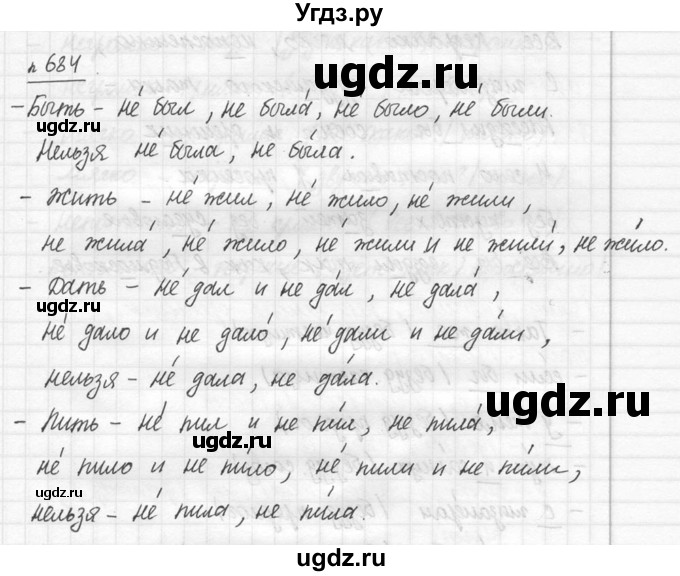 Угдз.ру
п 684.
ugdz.ru
ugdz.ru
- Быть - не́ был, не была́, не́ было, не́ были.
Нельзя не́ была, не бы́ла.
- Жить - не́ жил, не́ жило, не́ жили,
не жила́, не́ жило, не́ жили и не жили́, не жи́ло.
ugdz.ru
- Дать - не́ дал и не да́л, не дала́,
не́ дало и не дало́, не́ дали и не да́ли,
нельзя - не́ дала, не да́ла.
ugdz.ru
ugdz.ru
- Пить - не́ пил и не пи́л, не пила́,
не́ пило и не пи́ло, не́ пили и не пи́ли,
ugdz.ru
нельзя - не́ пила, не пи́ла.
ugdz.ru
ugdz.ru